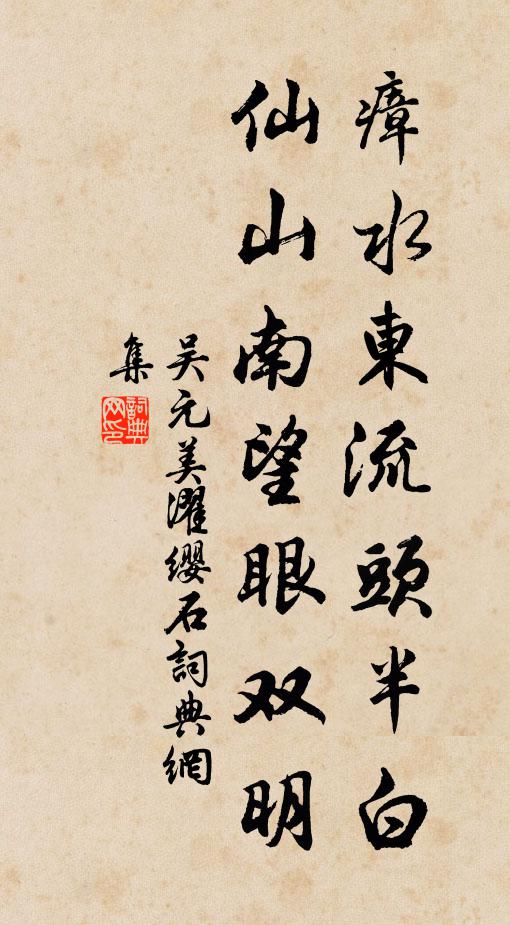 瘴水東流頭半白
仙山南望眼双明
吴元美濯缨石詞典網
集
詞典網印